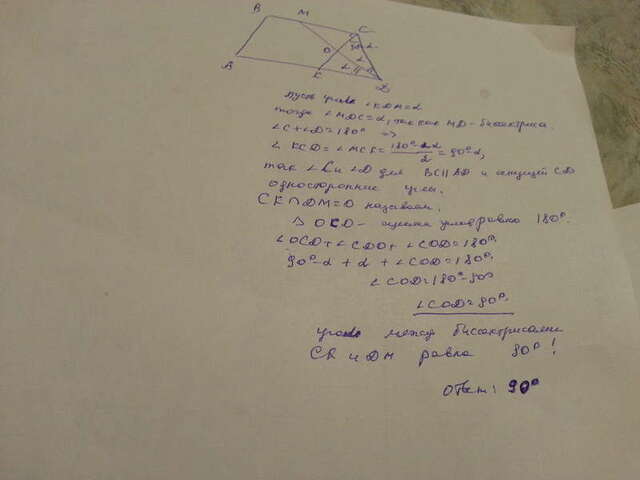 B M C
O 90-α
α
A K α D
пусть угол ∠KDM=α
тогда ∠MDC=α, так как MD-биссектриса.
∠C+∠D=180° =>
∠KCD=∠MCK=180°-2α/2=90°-α,
так ∠C и ∠D для BC||AD и секущей CD
односторонние углы.
CK∩DM=O назовем.
△ OCD - сумма углов равна 180°.
∠OCD+∠CDO+∠COD=180°.
90°-α+α+∠COD=180°.
∠COD=180°-90°
∠COD=90°.
угол между биссектрисами
CK и DM равна 90°!
Ответ: 90°